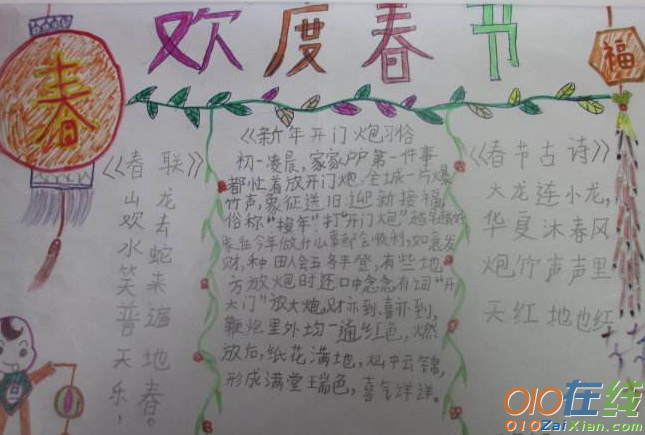 欢度春节
春
福
《春联》
龙去蛇来遍地春。
山欢水笑普天乐,
《新年开门炮习俗
初一凌晨,家家户户第一件事
都忙着放开门炮.全城一片爆
竹声,象征送旧迎新接福,
俗称“接年”打“开门炮”越早
在今年做什么事都会顺利,如意发
财,种田人会五谷丰登,有些地
方放炮时还口中念念有词“开
大门”放大炮,财亦到喜亦到,
鞭炮里外均一通红色,燃
放后,纸花满地,灿中云锦,
形成满堂瑞色,喜气洋洋。
《春节古诗》
大龙连小龙,
华夏沐春风
炮竹声声里
天红地也红
010在线
010ZaiXian.com